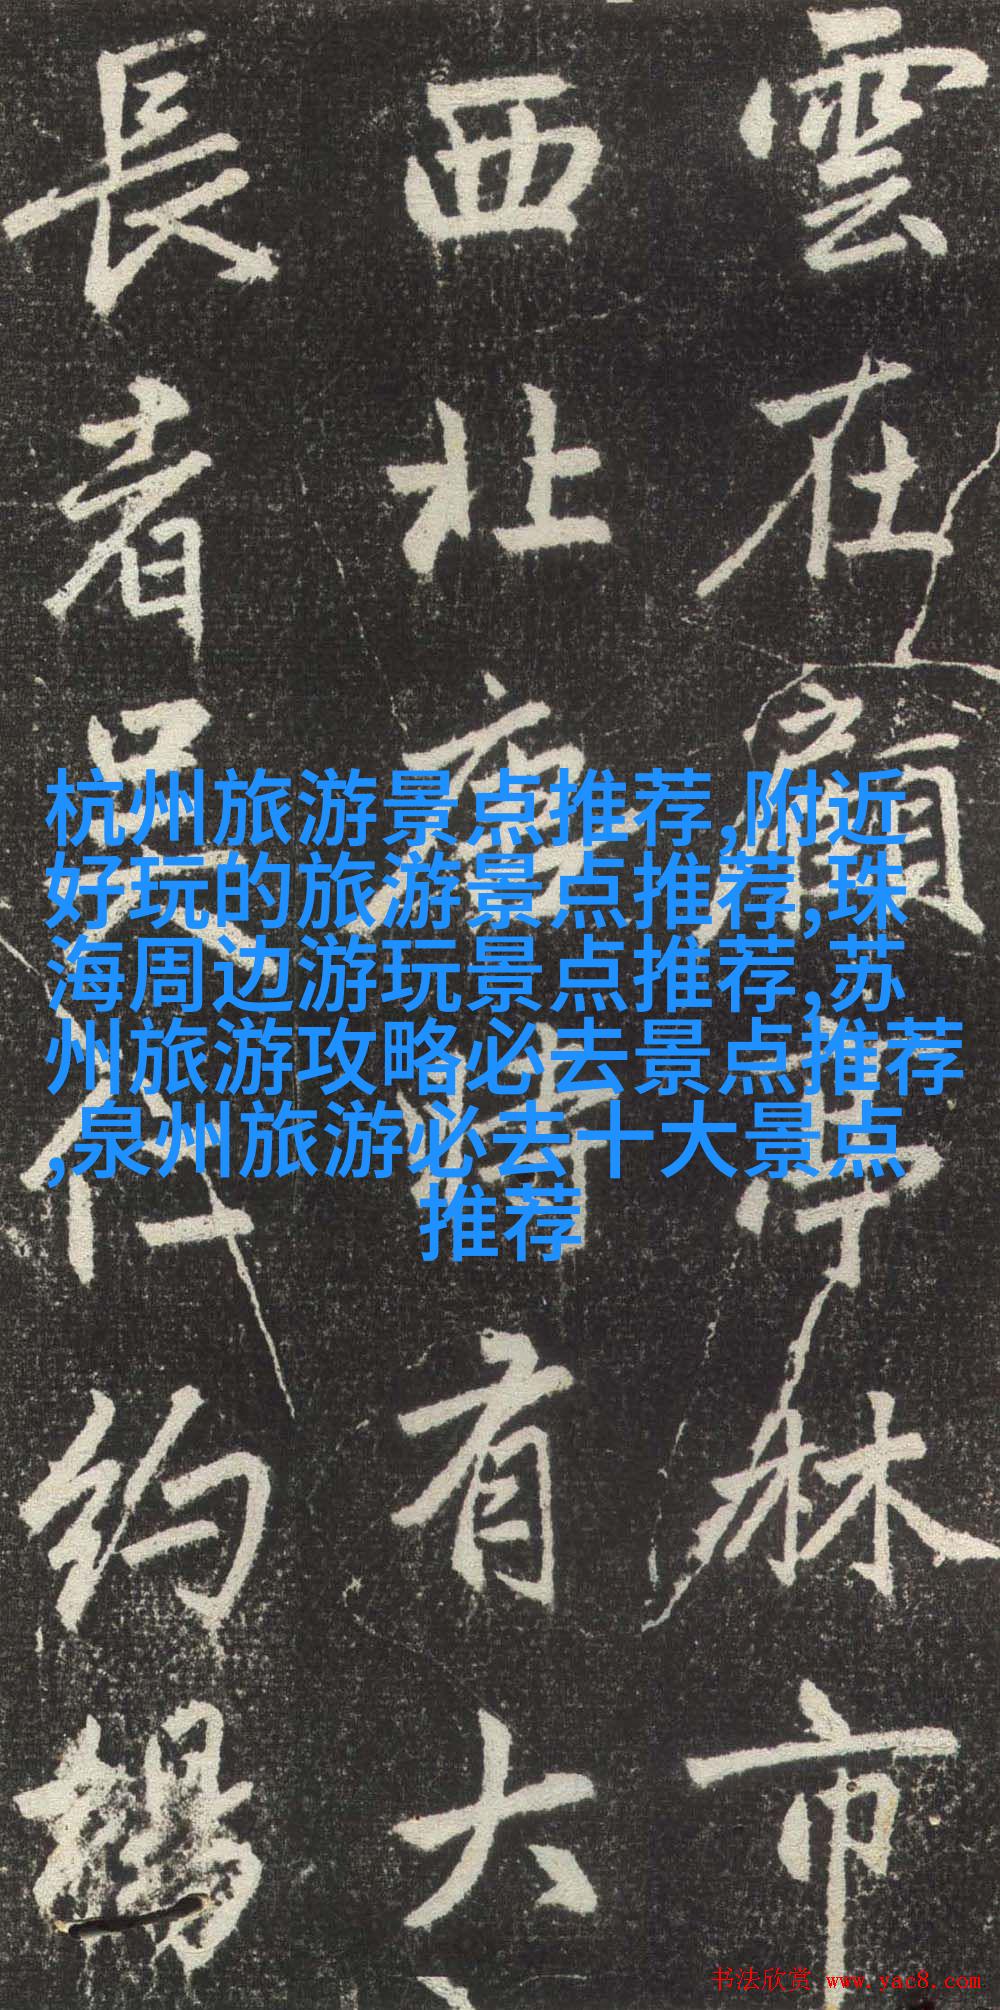 雲在顧亭林市
西北時有大
長者吳仁約
杭州旅游景点推荐,附近
好玩的旅游景点推荐,珠
海周边游玩景点推荐,苏
州旅游攻略必去景点推荐
,泉州旅游必去十大景点
推荐
书法欣赏 www.yac8.com